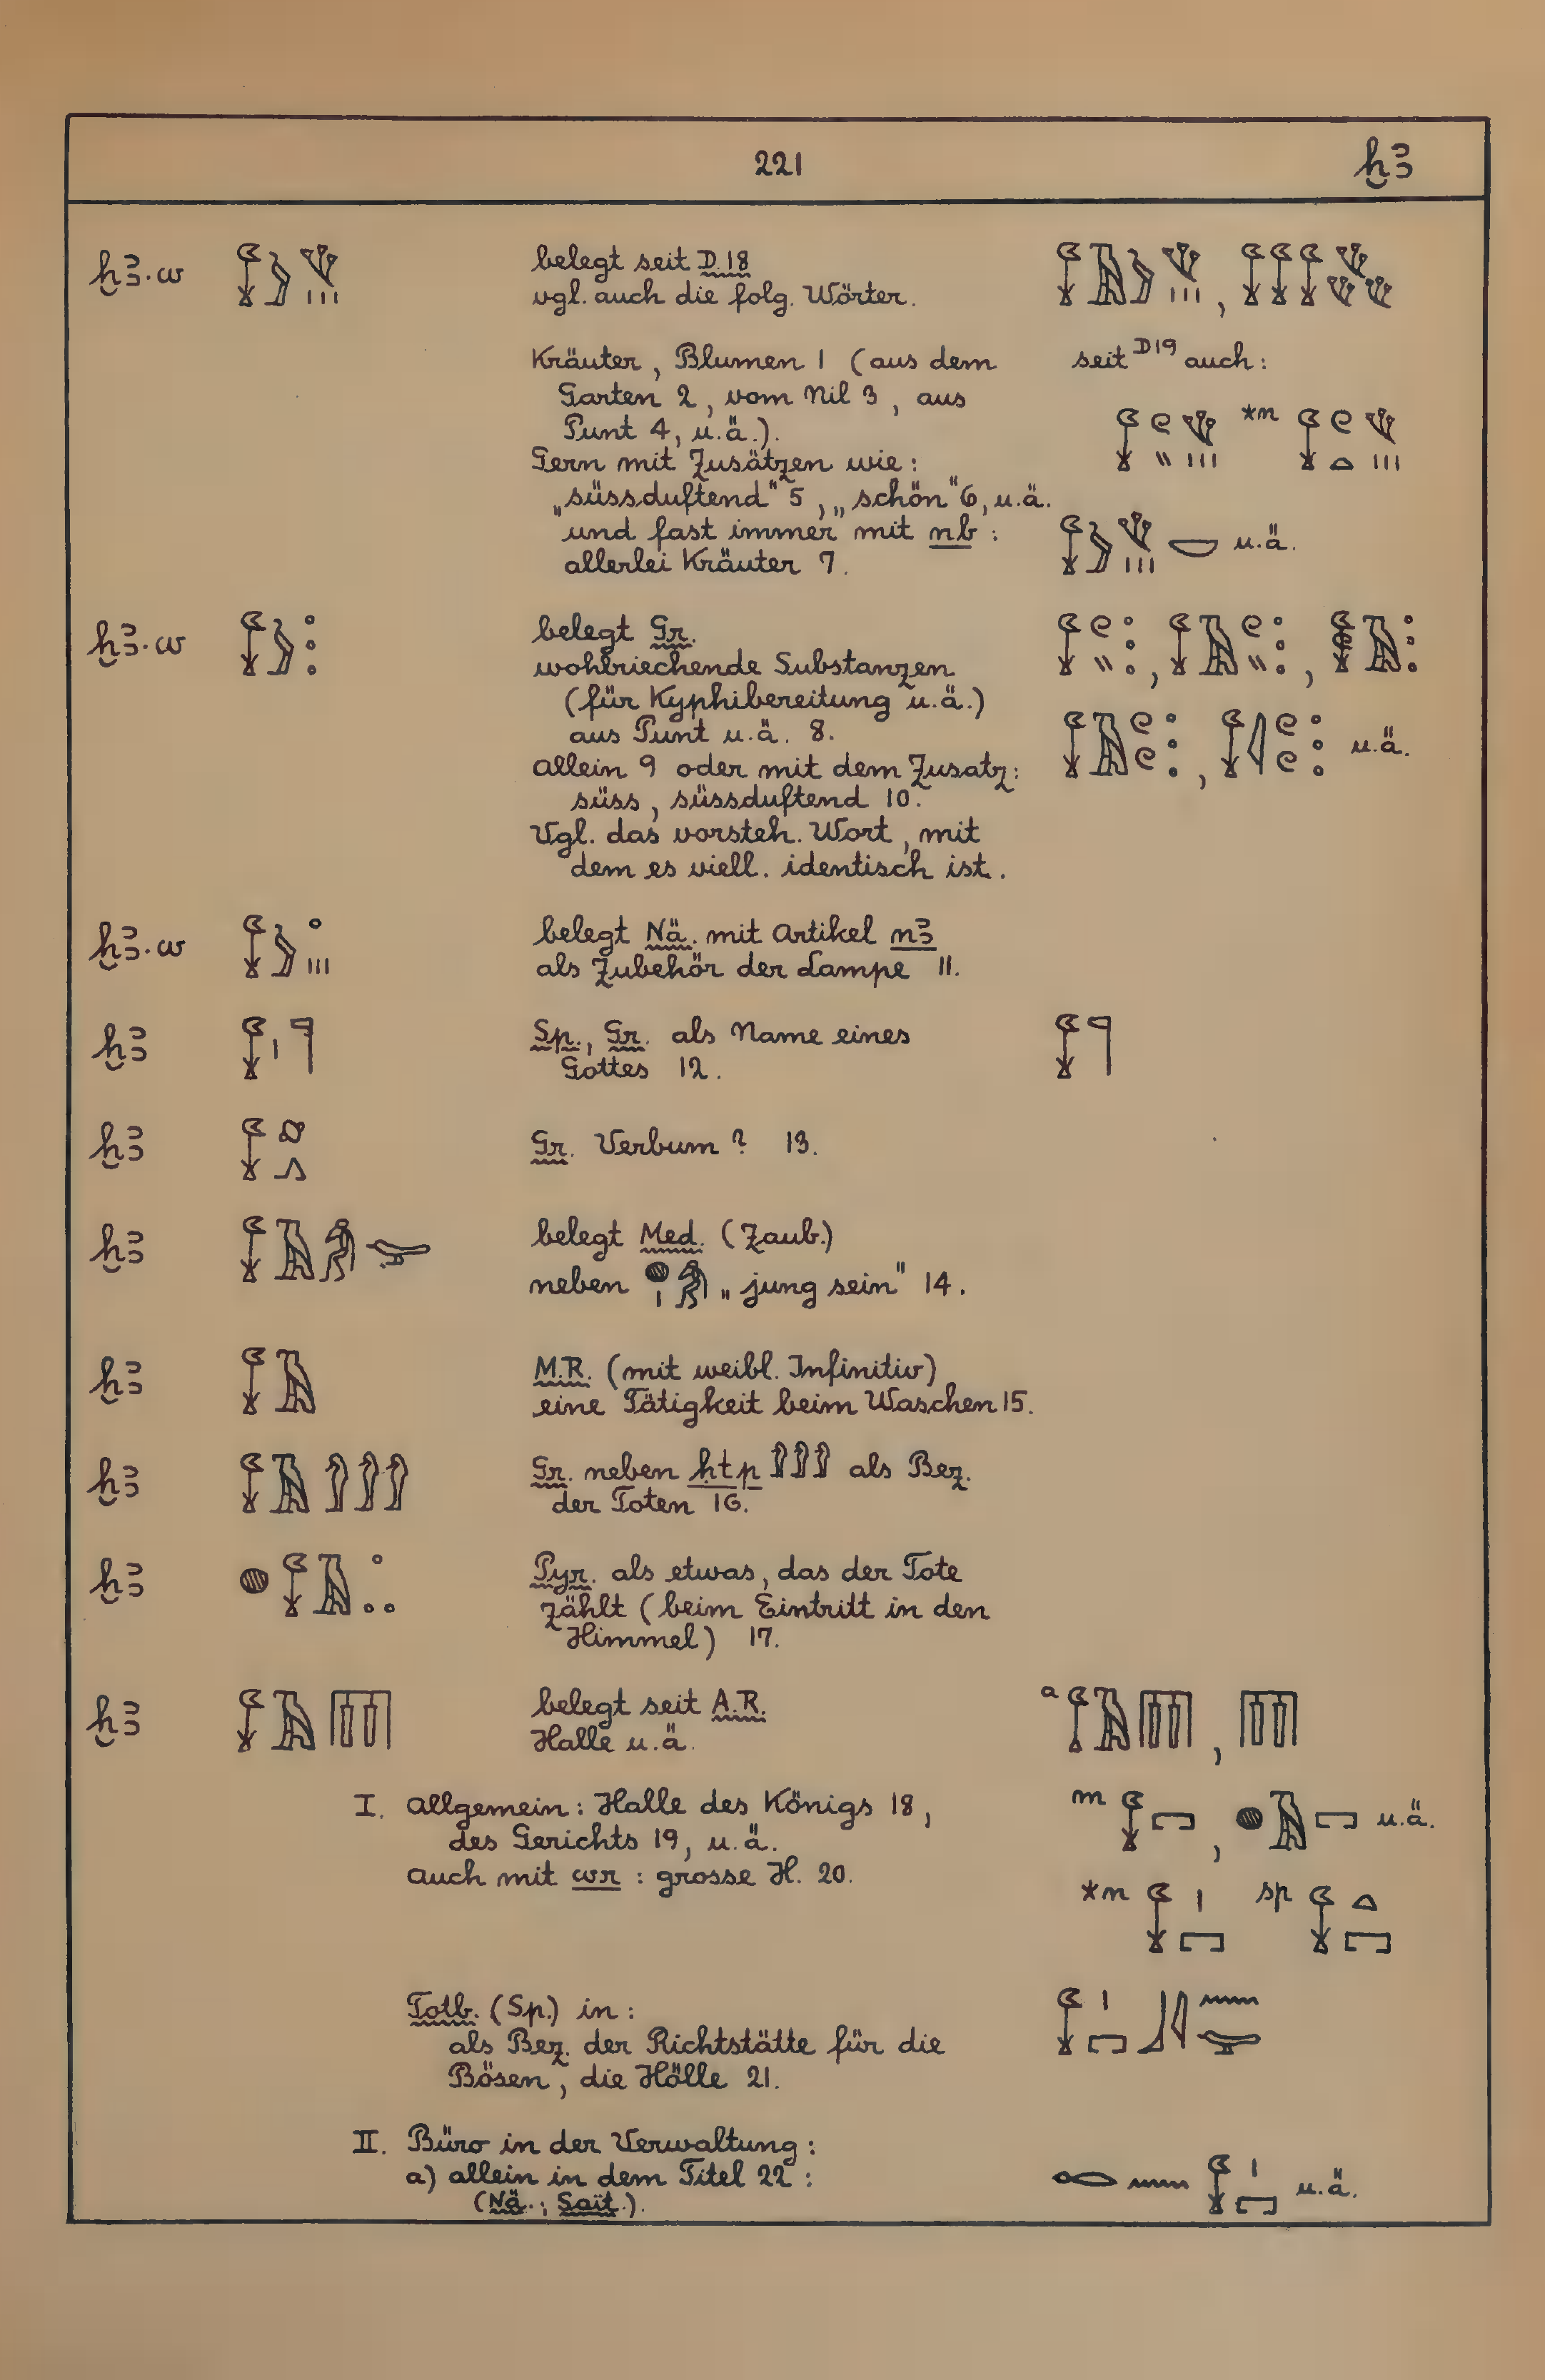 221 ḫꜣ
ḫꜣ.w belegt seit D.18
vgl. auch die folg. Wörter.
Kräuter, Blumen 1 (aus dem
seit D19 auch:
Garten 2, vom Nil 3, aus
Punt 4, u.ä.).
*n
Gern mit Zusätzen wie:
„süssduftend" 5, „schön" 6, u.ä.
und fast immer mit nb:
u.ä.
allerlei Kräuter 7.
ḫꜣ.w belegt Gr.
wohlriechende Substanzen
(für Kyphibereitung u.ä.)
aus Punt u.ä. 8.
u.ä.
allein 9 oder mit dem Zusatz:
süss, süssduftend 10.
Vgl. das vorsteh. Wort, mit
dem es viell. identisch ist.
ḫꜣ.w belegt Nä. mit Artikel nꜣ
als Zubehör der Lampe 11.
ḫꜣ Sp., Gr. als Name eines
Gottes 12.
ḫꜣ Gr. Verbum? 13.
ḫꜣ belegt Med. (Zaub.)
neben „jung sein" 14.
ḫꜣ M.R. (mit weibl. Infinitiv)
eine Tätigkeit beim Waschen 15.
ḫꜣ Gr. neben ḥtp als Bez.
der Toten 16.
ḫꜣ Pyr. als etwas, das der Tote
zählt (beim Eintritt in den
Himmel) 17.
ḫꜣ belegt seit A.R.
a
Halle u.ä.
I. allgemein: Halle des Königs 18,
m u.ä.
des Gerichts 19, u.ä.
auch mit wr: grosse H. 20.
*n sp
Totb. (Sp.) in:
als Bez. der Richtstätte für die
Bösen, die Hölle 21.
II. Büro in der Verwaltung:
a) allein in dem Titel 22:
u.ä.
(Nä.; Saït.).